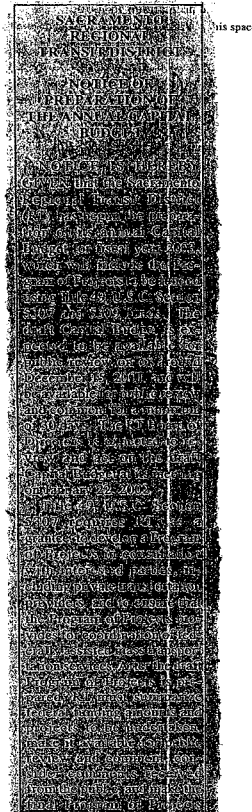 his spac
SACRAMENTO
REGIONAL
TRANSIT DISTRICT
NOTICE OF
PREPARATION OF
THE ANNUAL CAPITAL
BUDGET
NOTICE IS HEREBY
GIVEN that the Sacramento
Regional Transit District
(RT) has begun the prepara-
tion of its annual Capital
Budget for fiscal year 2003,
which will include the Pro-
gram of Projects to be funded
using Title 49 U.S.C. Section
5307 and 5309 funds. The
draft Capital Budget is ex-
pected to be available for
public review on or around
December 2001, and will
be available for public review
and comment for a minimum
of 30 days. The RT Board of
Directors is expected to re-
view and act on the draft
Capital Budget at its meeting
on January 22, 2002.
Title 49 U.S.C. Section
5307 requires RT as a
grantee to develop a Program
of Projects in consultation
with interested parties, in-
cluding private transportation
providers, and to ensure that
the Program of Projects pro-
vides for coordination of fed-
erally assisted mass transpor-
tation services. After the draft
Program of Projects is pre-
pared, RT must summarize
federal funding amounts and
projects to be undertaken,
make it available for public
review and comment, con-
sider comments received
from the public, and make the
final Program of Projects